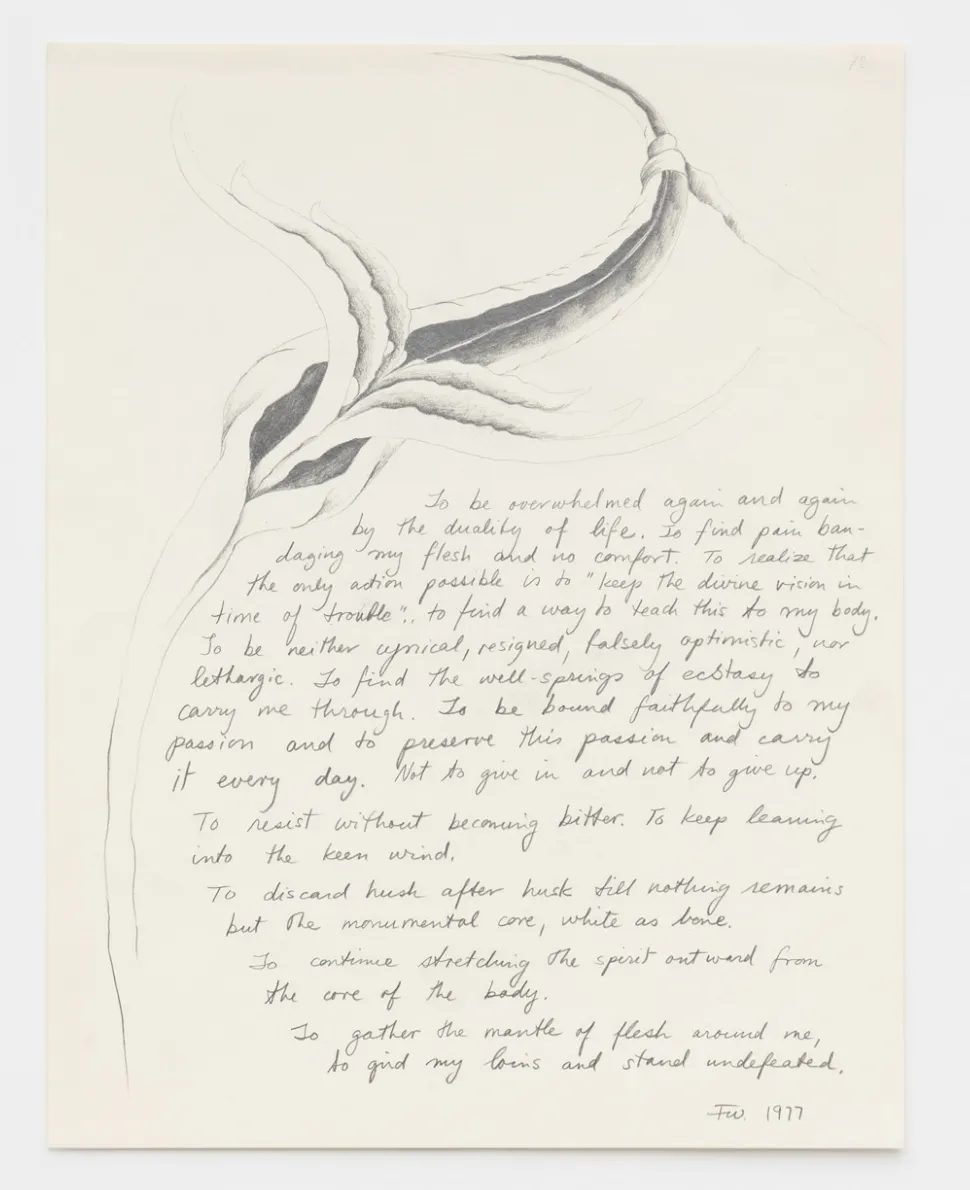 To be overwhelmed again and again
by the duality of life. To find pain ban-
daging my flesh and no comfort. To realize that
the only action possible is to "keep the divine vision in
time of trouble".. to find a way to teach this to my body.
To be neither cynical, resigned, falsely optimistic, nor
lethargic. To find the well-springs of ecstasy to
carry me through. To be bound faithfully to my
passion and to preserve this passion and carry
it every day. Not to give in and not to give up.
To resist without becoming bitter. To keep leaning
into the keen wind.
To discard husk after husk till nothing remains
but the monumental core, white as bone.
To continue stretching the spirit outward from
the core of the body.
To gather the mantle of flesh around me,
to gird my loins and stand undefeated.
FW. 1977